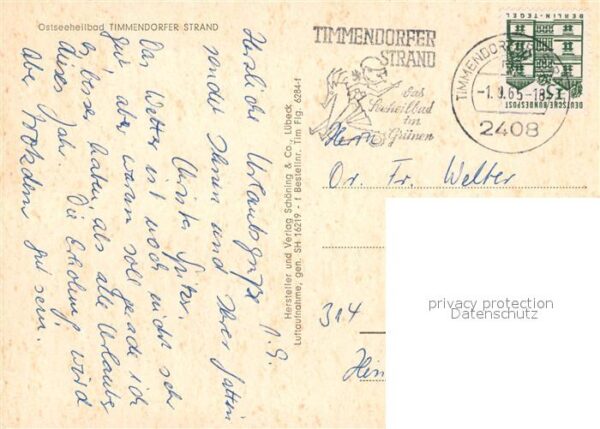 Ostseeheilbad TIMMENDORFER STRAND
1.9.
Herzliche Urlaubsgrüße
sendet Ihnen und Ihrer Gattin
Christa
Das Wetter ist noch nicht sehr
gut, aber warum soll gerade ich
es besser haben, als alle Urlauber
dieses Jahr. Die Erholung wird
aber trotzdem gut sein.
Hersteller und Verlag Schöning & Co., Lübeck
Luftaufnahme, gen. SH 16219 - f Bestellnr. Tim Flg. 6284-f
TIMMENDORFER
STRAND
das
Seeheilbad
im
Grünen
TIMMENDORFER
-1.9.65-18
2408
BERLIN-TEGEL
DEUTSCHE BUNDESPOST
Herrn
Dr. Fr. Welter
314
privacy protection
Datenschutz